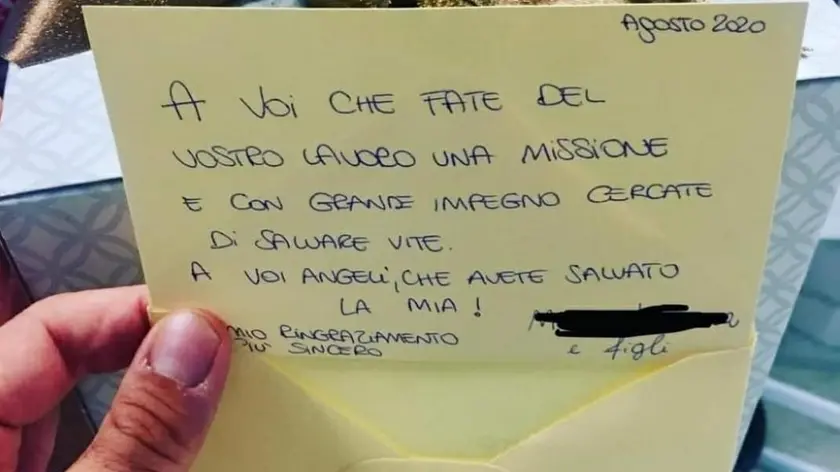 AGOSTO 2020
A VOI CHE FATE DEL
VOSTRO LAVORO UNA MISSIONE
E CON GRANDE IMPEGNO CERCATE
DI SALVARE VITE.
A VOI ANGELI, CHE AVETE SALVATO
LA MIA!
MIO RINGRAZIAMENTO
PIU' SINCERO
e figli